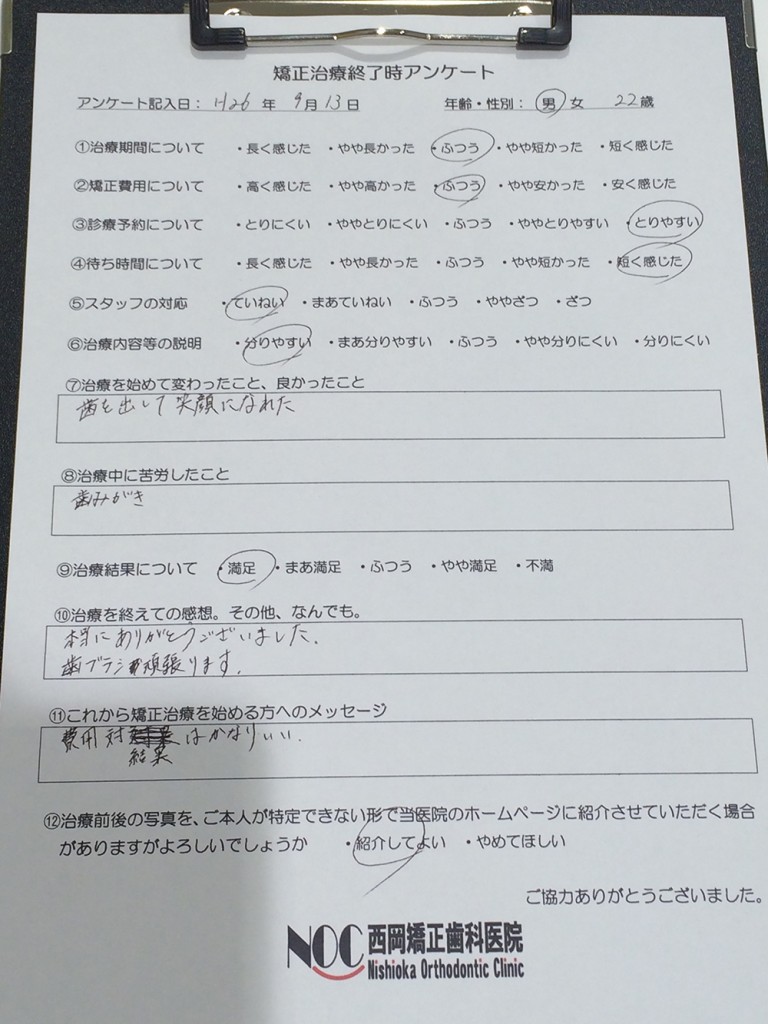 矯正治療終了時アンケート
アンケート記入日： H26 年 9月 13日 年齢・性別： 男 女 22歳
①治療期間について ・長く感じた ・やや長かった ・ふつう ・やや短かった ・短く感じた
②矯正費用について ・高く感じた ・やや高かった ・ふつう ・やや安かった ・安く感じた
③診療予約について ・とりにくい ・ややとりにくい ・ふつう ・ややとりやすい ・とりやすい
④待ち時間について ・長く感じた ・やや長かった ・ふつう ・やや短かった ・短く感じた
⑤スタッフの対応 ・ていねい ・まあていねい ・ふつう ・ややざつ ・ざつ
⑥治療内容等の説明 ・分りやすい ・まあ分りやすい ・ふつう ・やや分りにくい ・分りにくい
⑦治療を始めて変わったこと、良かったこと
歯を出して笑顔になれた
⑧治療中に苦労したこと
歯みがき
⑨治療結果について ・満足 ・まあ満足 ・ふつう ・やや満足 ・不満
⑩治療を終えての感想。その他、なんでも。
本当にありがとうございました.
歯ブラシ頑張ります.
⑪これから矯正治療を始める方へのメッセージ
費用対 はかなりいい.
結果
⑫治療前後の写真を、ご本人が特定できない形で当医院のホームページに紹介させていただく場合
がありますがよろしいでしょうか ・紹介してよい ・やめてほしい
ご協力ありがとうございました。
NOC 西岡矯正歯科医院
Nishioka Orthodontic Clinic